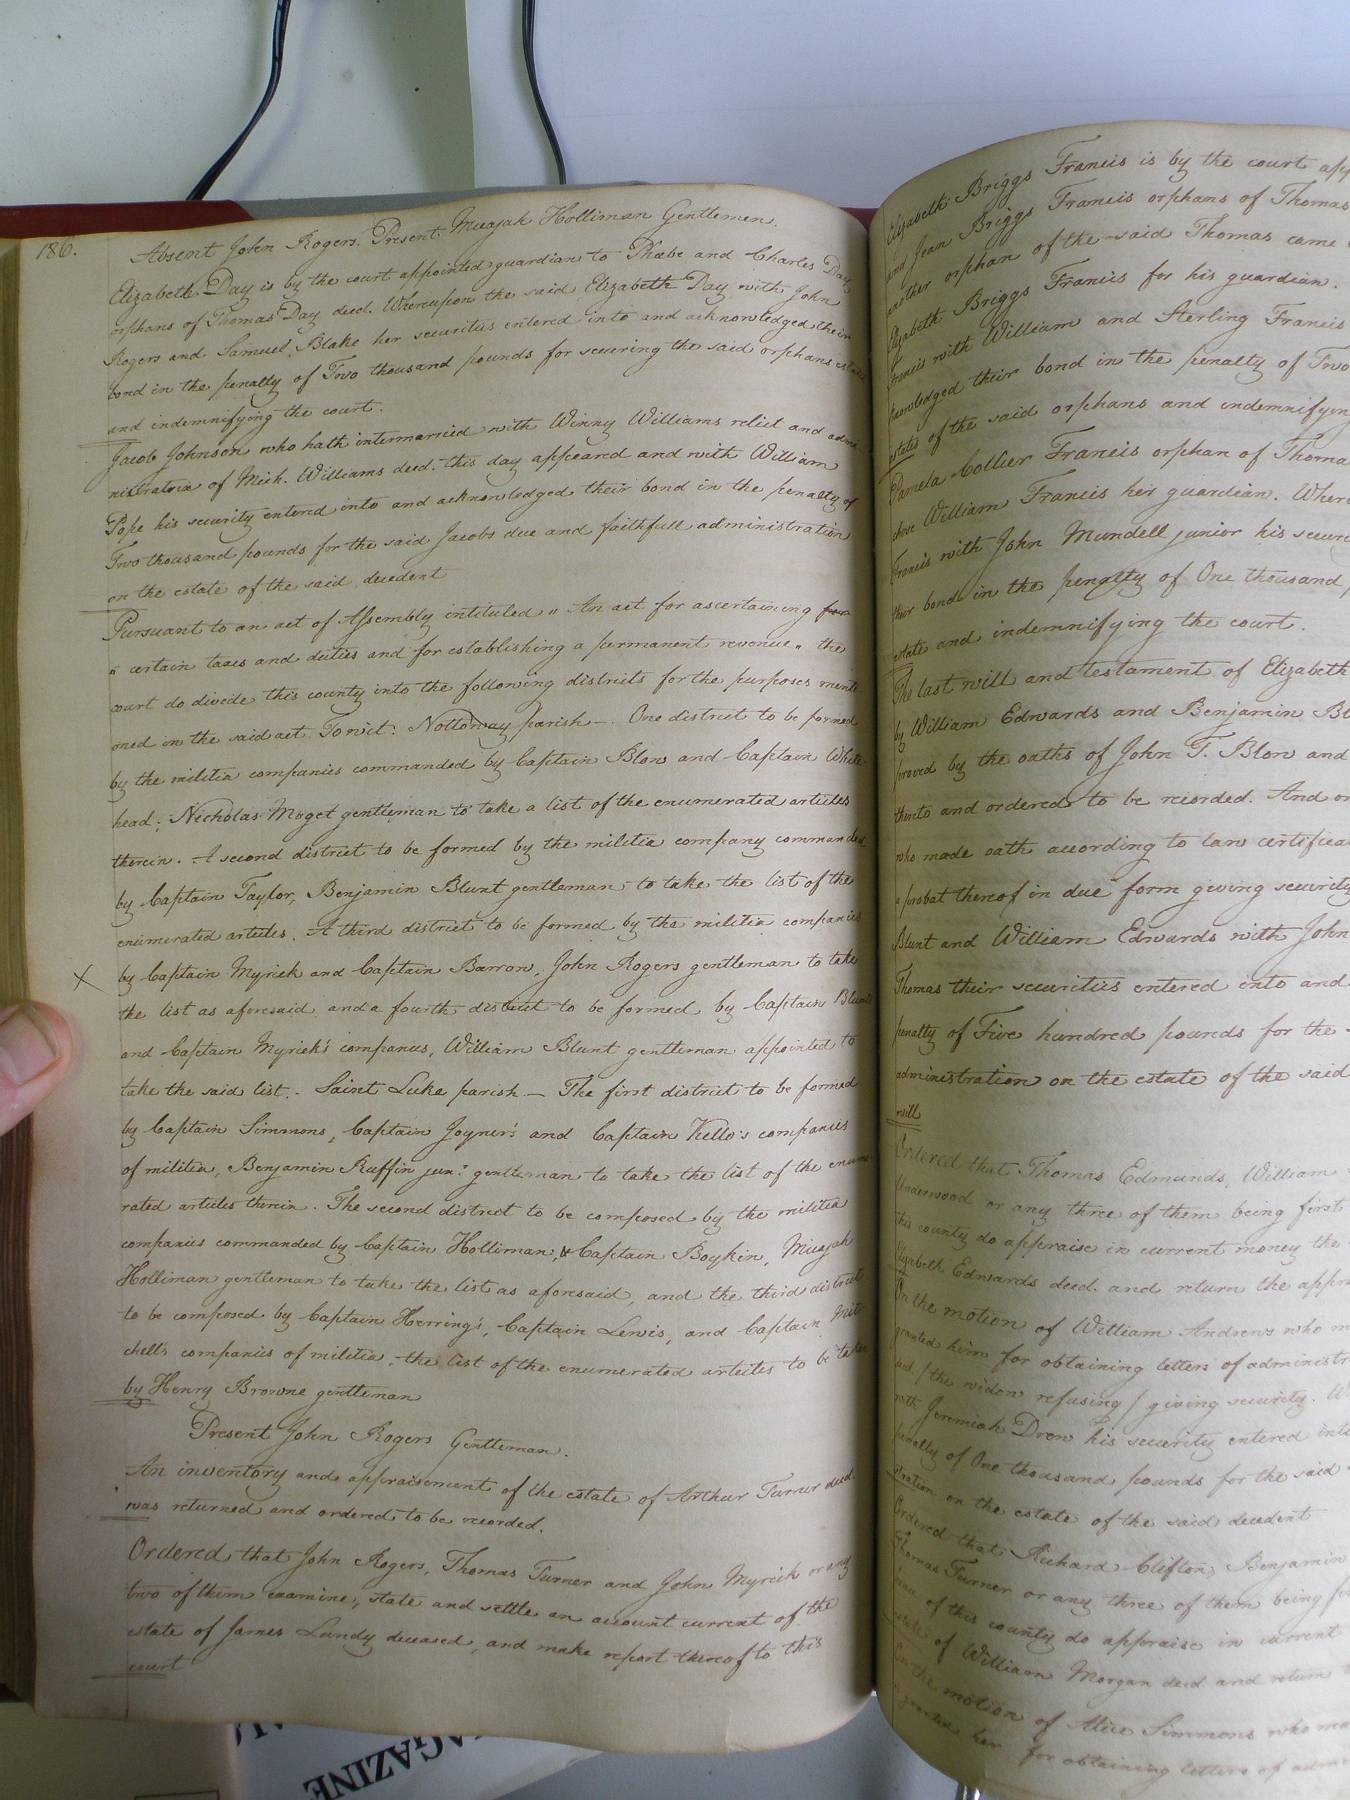 186.
Absent John Rogers. Present Micajah Holliman Gentlemen.
Elizabeth Day is by the court appointed guardian to Phœbe and Charles Day
orphans of Thomas Day decd. Whereupon the said Elizabeth Day with John
Rogers and Samuel Blake her securities entered into and acknowledged their
bond in the penalty of Two thousand pounds for securing the said orphans estate
and indemnifying the court.
Jacob Johnson who hath intermarried with Winny Williams relict and admi
nistratrix of Mich. Williams decd. this day appeared and with William
Pope his security entered into and acknowledged their bond in the penalty of
Two thousand pounds for the said Jacobs due and faithfull administration
on the estate of the said decedent
Pursuant to an act of Assembly intituled " An act for ascertaining for
" certain taxes and duties and for establishing a permanent revenue " the
court do divide this county into the following districts for the purposes menti
oned in the said act. Towit: Nottoway parish —. One district to be formed
by the militia companies commanded by Captain Blow and Captain White
head; Nicholas Maget gentleman to take a list of the enumerated articles
therein. A second district to be formed by the militia company commanded
by Captain Taylor, Benjamin Blunt gentleman to take the list of the
enumerated articles. A third district to be formed by the militia companies
by Captain Myrick and Captain Barrow, John Rogers gentleman to take
X
the list as aforesaid, and a fourth district to be formed by Captain Blunt
and Captain Myrick's companies, William Blunt gentleman appointed to
take the said list. - Saint Luke parish — The first district to be formed
by Captain Simmons, Captain Joyner's and Captain Kello's companies
of militia, Benjamin Ruffin junr. gentleman to take the list of the enume
rated articles therein. The second district to be composed by the militia
companies commanded by Captain Holliman, & Captain Boykin, Micajah
Holliman gentleman to take the list as aforesaid, and the third district
to be composed by Captain Herring's, Captain Lewis, and Captain Mit
chells companies of militia, the list of the enumerated articles to be taken
by Henry Browne gentleman
Present John Rogers Gentleman.
An inventory and appraisement of the estate of Arthur Turner decd.
was returned and ordered to be recorded.
Ordered that John Rogers, Thomas Turner and John Myrick or any
two of them examine, state and settle an account current of the
estate of James Lundy deceased, and make report thereof to this
court
Elizabeth Briggs Francis is by the court app
and Jean Briggs Francis orphans of Thomas
another orphan of the said Thomas came
Elizabeth Briggs Francis for his guardian.
Francis with William and Sterling Francis
knowledged their bond in the penalty of Two
estates of the said orphans and indemnifyin
Pamela Collier Francis orphan of Thoma
chose William Francis her guardian. Where
Francis with John Mundell junior his secur
their bond in the penalty of One thousand
estate and indemnifying the court.
The last will and testament of Elizabeth
by William Edwards and Benjamin Bl
proved by the oaths of John T. Blow and
thereto and ordered to be recorded. And on
who made oath according to law certifica
a probat thereof in due form giving security
Blunt and William Edwards with John
Thomas their securities entered into and
penalty of Five hundred pounds for the
administration on the estate of the said
will
Ordered that Thomas Edmunds, William
Underwood or any three of them being first
this county do appraise in current money the
Elizabeth Edwards decd. and return the appra
On the motion of William Andrews who m
granted him for obtaining letters of administr
decd. / the widow refusing / giving security. W
with Jeremiah Drew his security entered into
penalty of One thousand pounds for the said
stration on the estate of the said decedent
Ordered that Richard Clifton, Benjamin
Thomas Turner or any three of them being fi
of this county do appraise in current
estate of William Morgan decd and return
On the motion of Alice Simmons who ma
granted her for obtaining letters of admi
MAGAZINE